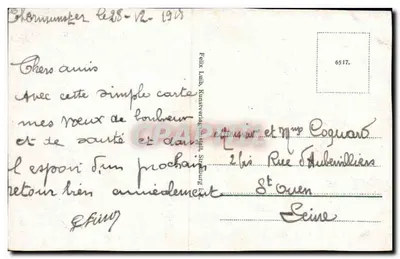 le 28-12-1918
Chers amis
Avec cette simple carte
mes voeux de bonheur
et de santé et dans
l espoir d'un prochain
retour bien amicalement
Felix Luib, Kunstverlag
Strasbourg
6517.
et Mme Coquard
2 bis Rue d'Aubervilliers
St Ouen
Seine